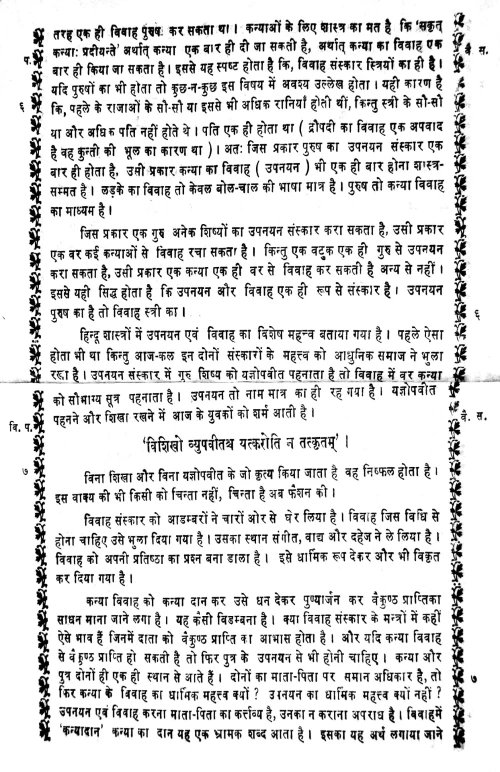 तरह एक ही विवाह पुरुष कर सकता था। कन्याओं के लिए शास्त्र का मत है कि 'सकृत्
कन्याः प्रदीयन्ते' अर्थात् कन्या एक बार ही दी जा सकती है, अर्थात् कन्या का विवाह एक
वै. स.
प.
बार ही किया जा सकता है। इससे यह स्पष्ट होता है कि, विवाह संस्कार स्त्रियों का ही है।
यदि पुरुषों का भी होता तो कुछ-न-कुछ इस विषय में अवश्य उल्लेख होता। यही कारण है
६
कि, पहले के राजाओं के सौ-सौ या इससे भी अधिक रानियाँ होती थीं, किन्तु स्त्री के सौ-सौ
या और अधिक पति नहीं होते थे। पति एक ही होता था ( द्रौपदी का विवाह एक अपवाद
है वह कुन्ती की भूल का कारण था )। अतः जिस प्रकार पुरुष का उपनयन संस्कार एक
बार ही होता है, उसी प्रकार कन्या का विवाह ( उपनयन ) भी एक ही बार होना शास्त्र-
सम्मत है। लड़के का विवाह तो केवल बोल-चाल की भाषा मात्र है। पुरुष तो कन्या विवाह
का माध्यम है।
जिस प्रकार एक गुरु अनेक शिष्यों का उपनयन संस्कार करा सकता है, उसी प्रकार
एक वर कई कन्याओं से विवाह रचा सकता है। किन्तु एक वटुक एक ही गुरु से उपनयन
करा सकता है, उसी प्रकार एक कन्या एक ही वर से विवाह कर सकती है अन्य से नहीं।
इससे यही सिद्ध होता है कि उपनयन और विवाह एक ही रूप से संस्कार है। उपनयन
पुरुष का है तो विवाह स्त्री का।
६
हिन्दू शास्त्रों में उपनयन एवं विवाह का विशेष महत्त्व बताया गया है। पहले ऐसा
होता भी था किन्तु आज-कल इन दोनों संस्कारों के महत्त्व को आधुनिक समाज ने भुला
रखा है। उपनयन संस्कार में गुरु शिष्य को यज्ञोपवीत पहनाता है तो विवाह में वर कन्या
को सौभाग्य सूत्र पहनाता है। उपनयन तो नाम मात्र का ही रह गया है। यज्ञोपवीत
पहनने और शिखा रखने में आज के युवकों को शर्म आती है।
वि. प.
वै. स.
'विशिखो व्युपवीतश्च यत्करोति न तत्कृतम्'।
७
बिना शिखा और बिना यज्ञोपवीत के जो कृत्य किया जाता है वह निष्फल होता है।
इस वाक्य की भी किसी को चिन्ता नहीं, चिन्ता है अब फैशन की।
विवाह संस्कार को आडम्बरों ने चारों ओर से घेर लिया है। विवाह जिस विधि से
होना चाहिए उसे भुला दिया गया है। उसका स्थान संगीत, वाद्य और दहेज ने ले लिया है।
विवाह को अपनी प्रतिष्ठा का प्रश्न बना डाला है। इसे धार्मिक रूप देकर और भी विकृत
कर दिया गया है।
कन्या विवाह को कन्या दान कर उसे धन देकर पुण्यार्जन कर वैकुण्ठ प्राप्तिका
साधन माना जाने लगा है। यह कैसी विडम्बना है। क्या विवाह संस्कार के मन्त्रों में कहीं
ऐसे भाव हैं जिनमें दाता को वैकुण्ठ प्राप्ति का आभास होता है। और यदि कन्या विवाह
से वैकुण्ठ प्राप्ति हो सकती है तो फिर पुत्र के उपनयन से भी होनी चाहिए। कन्या और
पुत्र दोनों ही एक ही स्थान से आते हैं। दोनों का माता-पिता पर समान अधिकार है, तो
७
फिर कन्या के विवाह का धार्मिक महत्त्व क्यों? उपनयन का धार्मिक महत्त्व क्यों नहीं?
उपनयन एवं विवाह करना माता-पिता का कर्त्तव्य है, उनका न कराना अपराध है। विवाहमें
'कन्यादान' कन्या का दान यह एक भ्रामक शब्द आता है। इसका यह अर्थ लगाया जाने